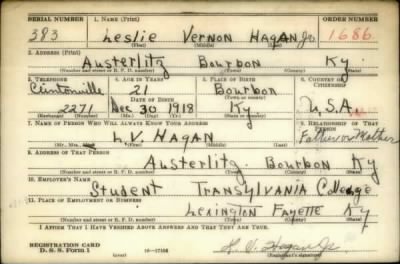 SERIAL NUMBER 1. NAME (Print) ORDER NUMBER
383 Leslie Vernon Hagan Jr 1686
(First) (Middle) (Last)
2. ADDRESS (Print)
Austerlitz Bourbon Ky.
(Number and street or R. F. D. number) (Town) (County) (State)
3. TELEPHONE 4. AGE IN YEARS 5. PLACE OF BIRTH 6. COUNTRY OF CITIZENSHIP
Clintonville 21 Bourbon
DATE OF BIRTH (Town or county)
2271 Dec 30 1918 Ky U.S.A.
(Exchange) (Number) (Mo.) (Day) (Yr.) (State or country)
7. NAME OF PERSON WHO WILL ALWAYS KNOW YOUR ADDRESS 8. RELATIONSHIP OF THAT PERSON
L.V. Hagan Father or Mother
(Mr., Mrs., Miss) (First) (Middle) (Last)
9. ADDRESS OF THAT PERSON
Austerlitz Bourbon Ky
(Number and street or R. F. D. number) (Town) (County) (State)
10. EMPLOYER'S NAME
Student Transylvania College
11. PLACE OF EMPLOYMENT OR BUSINESS
Lexington Fayette Ky
(Number and street or R. F. D. number) (Town) (County) (State)
I AFFIRM THAT I HAVE VERIFIED ABOVE ANSWERS AND THAT THEY ARE TRUE.
REGISTRATION CARD
D. S. S. Form 1 (over) L. V. Hagan Jr.
(Registrant's signature)